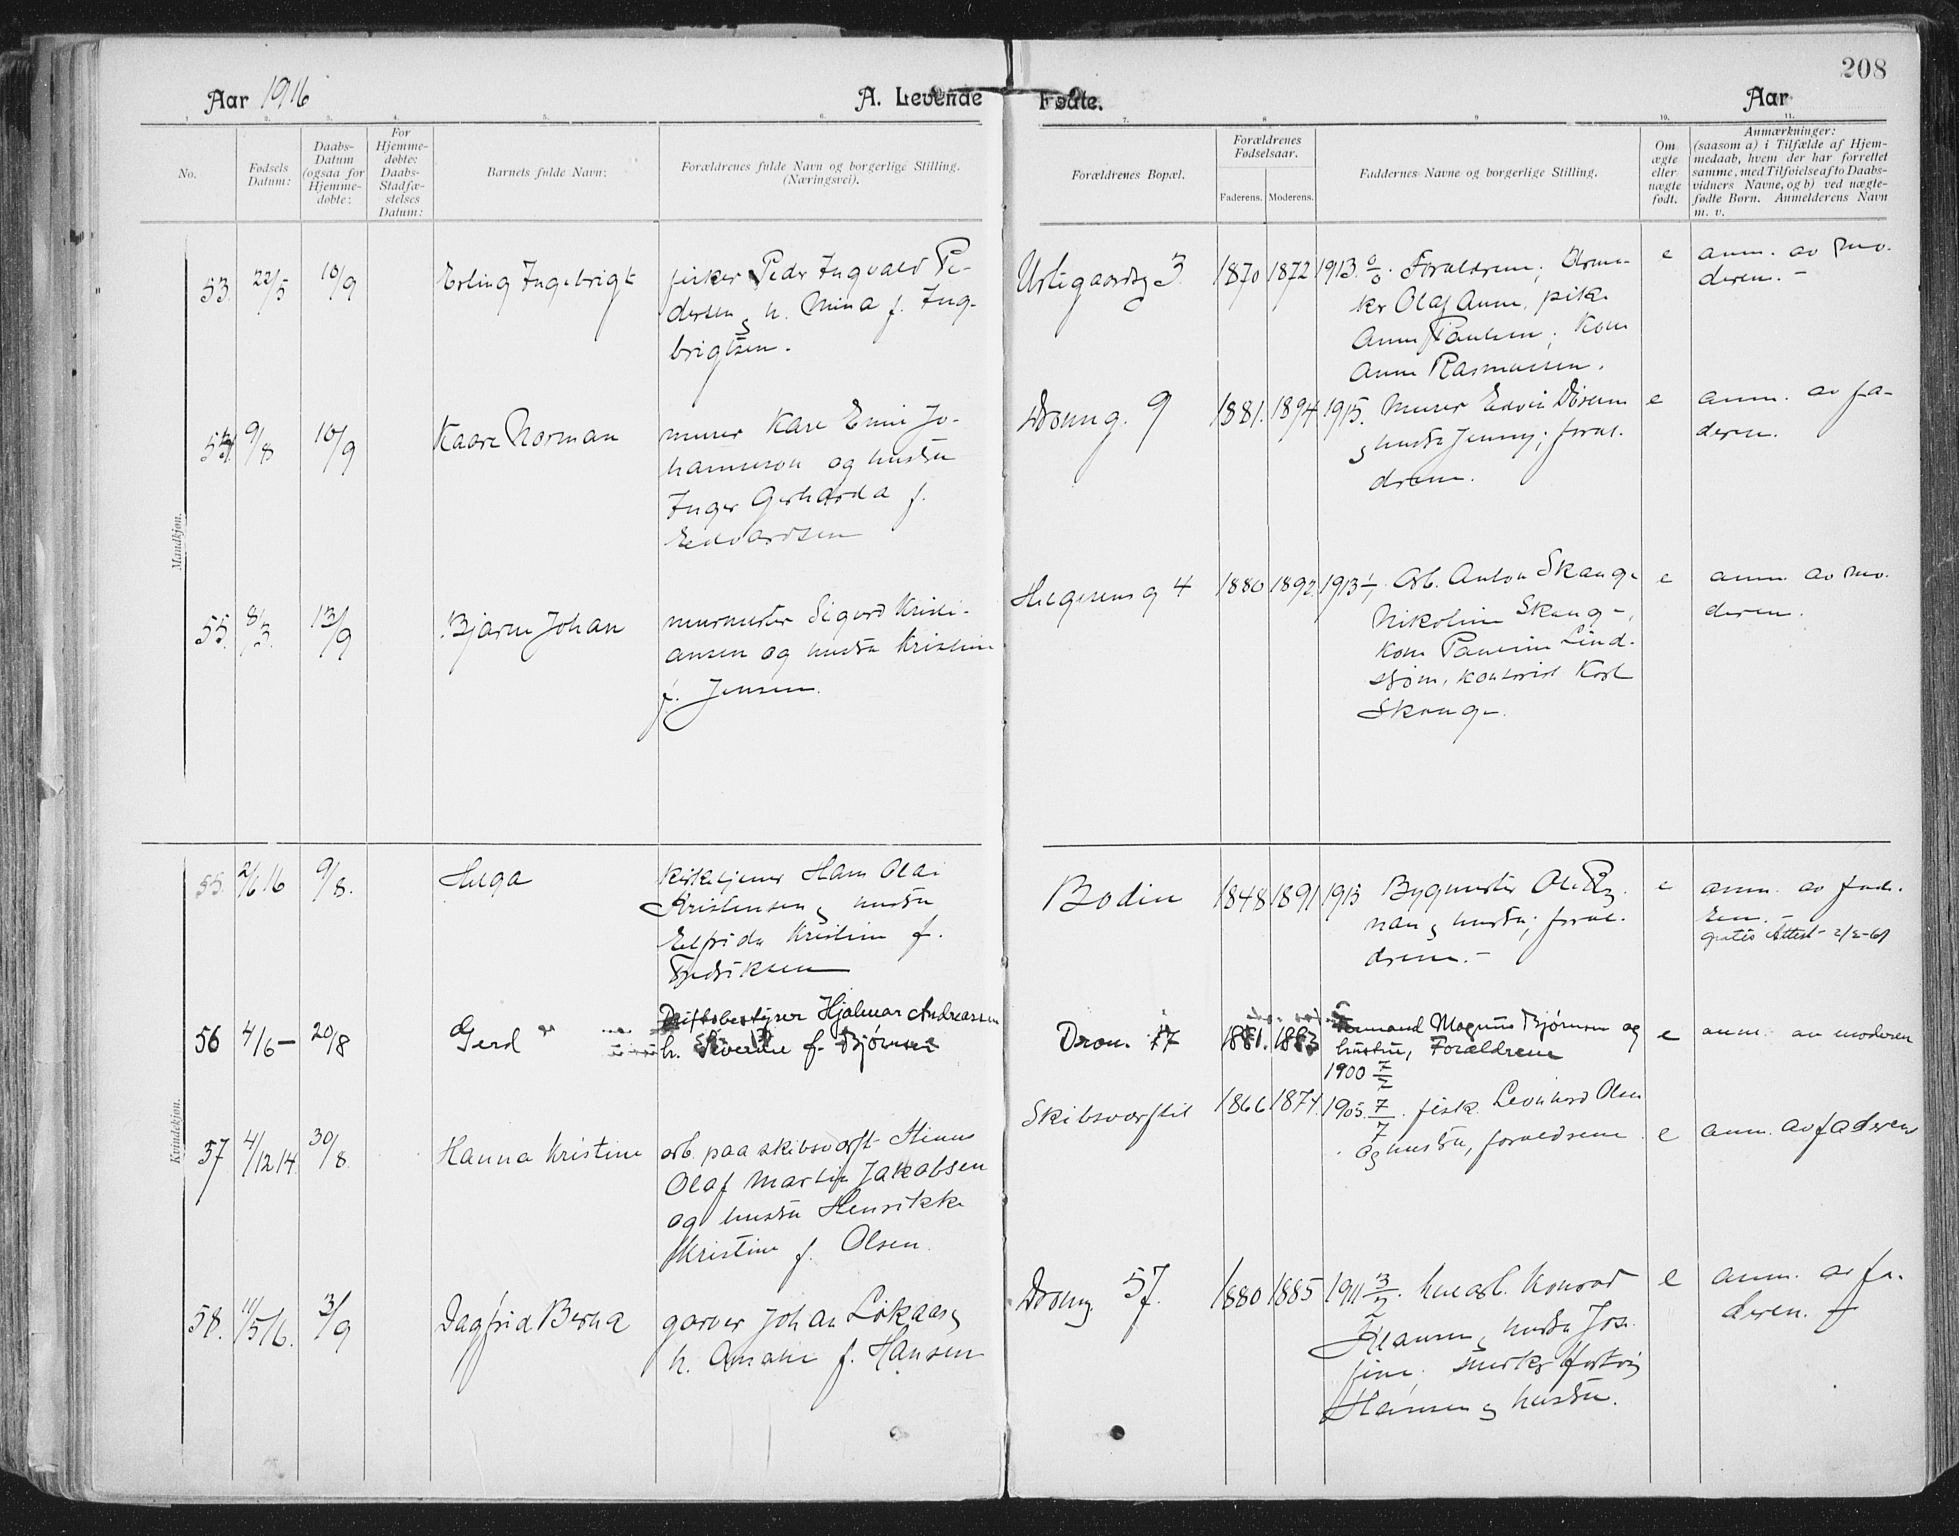 208
Aar 1916
A. Levende
Fødte.
Aar
1. 2. 3. 4. 5. 6. 7. 8 9 10. 11.
No.
Fødsels
Datum:
Daabs-
Datum
(ogsaa for
Hjemme-
døbte:
For
Hjemme-
døbte:
Daabs-
Stadfæ-
stelses
Datum:
Barnets fulde Navn:
Forældrenes fulde Navn og borgerlige Stilling.
(Næringsvei).
Forældrenes Bopæl.
Forældrenes
Fødselsaar.
Faderens. Moderens.
Faddernes Navne og borgerlige Stilling.
Om
ægte
eller
uægte
født.
Anmærkninger:
(saasom a) i Tilfælde af Hjem-
medaab, hvem der har forrettet
samme, med Tilføielse af to Daabs-
vidners Navne, og b) ved uægte-
fødte Børn. Anmelderens Navn
m. v.
Mandkjøn.
53. 22/5 10/9 Erling Ingebrigt
fisker Peder Ingvald Pe-
dersen og h. Mina f. Ing-
brigtsen.
3. 1870 1872 1913
Forældrene;
Olaf Aune, pike
Anna Paulsen; Kone
Anna Rasmussen.
e anm. av mo-
deren.-
54 9/8 10/9 Kaare Norman
murer Kare Emil Jo-
hannesson og hustru
Inger Gerharda f.
Edvardsen
Dronng. 9 1881. 1894 1915. Murer Edvin
og hustru Jenny; foræl-
drene.
e anm. av fa-
deren.
55. 8/3. 13/9 Bjarne Johan
murmester Sigurd Kristi-
ansen og hustru Kristine
f. Jensen.
4 1880 1892 1913 Arb. Anton Skauge
Nikoline Skauge,
Kone Lind-
strøm, kontorist Karl
Skauge.
e anm. av mo-
deren.
Kvindekjøn.
55. 2/6 16 9/8. Helga
kirketjener Hans Olai
Kristensen og hustru
Elfrida Kristine f.
Fredriksen
Bodin 1848 1891 1913 Bygmester Ole
og hustru; foræl-
drene.-
e anm. av fad-
eren.-
gratis Attest 2/2-61
56 4/6 - 20/8 Gerd
Driftsbestyrer Hjalmar Andreassen
h. Severine f. Bjørnsen
Dron. 17 1881. 1883 Magnus Bjørnsen og
hustru, Forældrene
1900
e anm. av moderen
57 4/12 14. 30/8 Hanna Kristine
arb. paa skibsværft
Olaf Martin Jakobsen
og hustru Henrikke
Kristine f. Olsen.
1866 1874. 1905. 7/7. fisk. Leonhard Olsen
og hustru, forældrene
e anm. av faderen
58. 11/5 16. 3/9 Dagfrid Berna
garver Johan Løkaas og
h. Amalie f. Hansen
Dronng. 57. 1880 1885 1911 3/2. Konrad
Hansen og hustru Jose-
fine;
Hansen og hustru.
e anm. av fa-
deren.